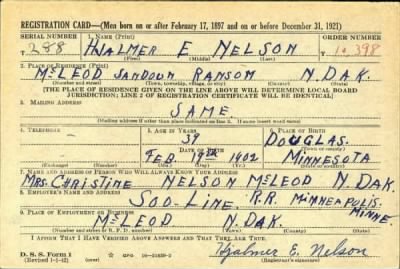 REGISTRATION CARD—(Men born on or after February 17, 1897 and on or before December 31, 1921)
SERIAL NUMBER 1. NAME (Print) ORDER NUMBER
T 288 HJALMER E NELSON T 10 398
(First) (Middle) (Last)
2. PLACE OF RESIDENCE (Print)
McLEOD SANDOUN RANSOM N. DAK.
(Number and street) (Town, township, village, or city) (County) (State)
[THE PLACE OF RESIDENCE GIVEN ON THE LINE ABOVE WILL DETERMINE LOCAL BOARD
JURISDICTION; LINE 2 OF REGISTRATION CERTIFICATE WILL BE IDENTICAL]
3. MAILING ADDRESS
SAME.
[Mailing address if other than place indicated on line 2. If same insert word same]
4. TELEPHONE 5. AGE IN YEARS 6. PLACE OF BIRTH
39 DOUGLAS.
DATE OF BIRTH (Town or county)
FEB. 19TH 1902 MINNESOTA
(Exchange) (Number) (Mo.) (Day) (Yr.) (State or country)
7. NAME AND ADDRESS OF PERSON WHO WILL ALWAYS KNOW YOUR ADDRESS
MRS. CHRISTINE NELSON McLEOD N. DAK.
8. EMPLOYER'S NAME AND ADDRESS
SOO-LINE. R.R. MINNEAPOLIS.
MINNE
9. PLACE OF EMPLOYMENT OR BUSINESS
McLEOD N. DAK.
(Number and street or R. F. D. number) (Town) (County) (State)
I AFFIRM THAT I HAVE VERIFIED ABOVE ANSWERS AND THAT THEY ARE TRUE.
D. S. S. Form 1
(Revised 1-1-42) GPO Hjalmer E. Nelson
(Registrant's signature)